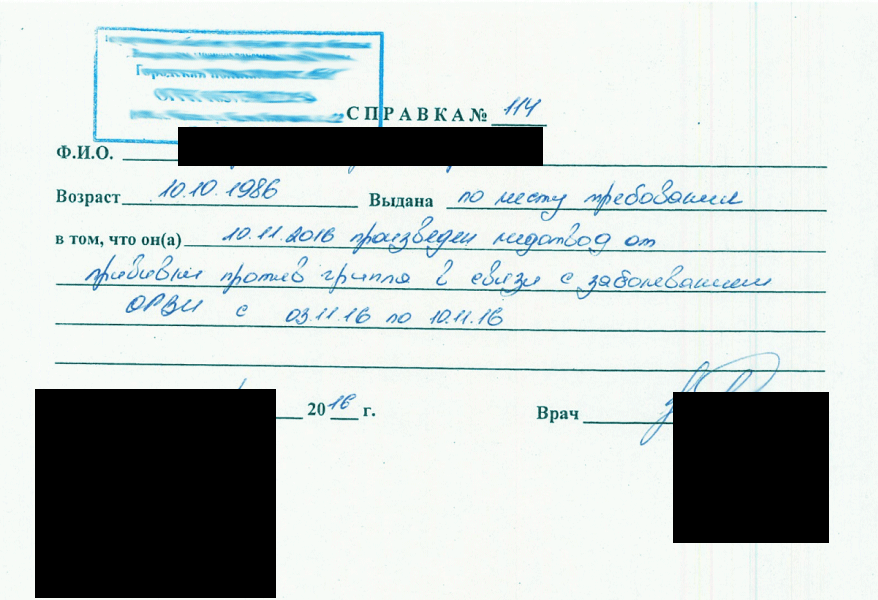 СПРАВКА № 114
Ф.И.О.
Возраст 10.10.1986 Выдана по месту требования
в том, что он(а) 10.11.2016 произведен медотвод от
прививки против гриппа в связи с заболеванием
ОРВИ с 03.11.16 по 10.11.16
2016 г. Врач